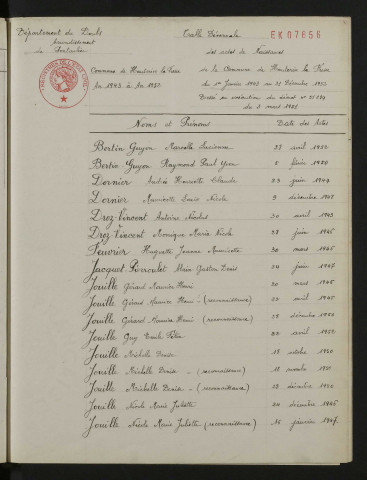 Département du Doubs
Arrondissement
de Pontarlier
Commune de
An 1943 à An 1952
Table Décennale
EK07656
des actes de Naissance
de la Commune de
du 1er Janvier 1943 au 31 Décembre 1952
Dressée en exécution du décret
du 3 mars 1951
Noms et Prénoms
Date des Actes
Bertin Guyon Marcelle Lucienne 23 avril 1952
Bertin-Guyon Raymond Paul Yvon 8 février 1950
Dornier Andrée Henriette Claude 23 juin 1944
Dornier Louis Nicole 9 décembre 1948
Droz Vincent Antoine Nicolas 30 avril 1943
Droz Vincent Monique Marie Nicole 28 juin 1945
Feuvrier Huguette Jeanne 30 mars 1945
Jacquet Pierroulet Alain Gaston Louis 24 juin 1947
Jouille Gérard Maurice Henri 30 mars 1945
Jouille Gérard Maurice Henri (reconnaissance) 25 avril 1945
Jouille Gérard Maurice Henri (reconnaissance) 28 décembre
Jouille Guy 30 avril 1952
Jouille Michelle Denise 18 octobre 1950
Jouille Michelle Denise - (reconnaissance) 18 1950
Jouille Michelle Denise - (reconnaissance) 23 décembre 1950
Jouille Nicole Marie Juliette 20 décembre 1946
Jouille Nicole Marie Juliette (reconnaissance) 15 février 1947